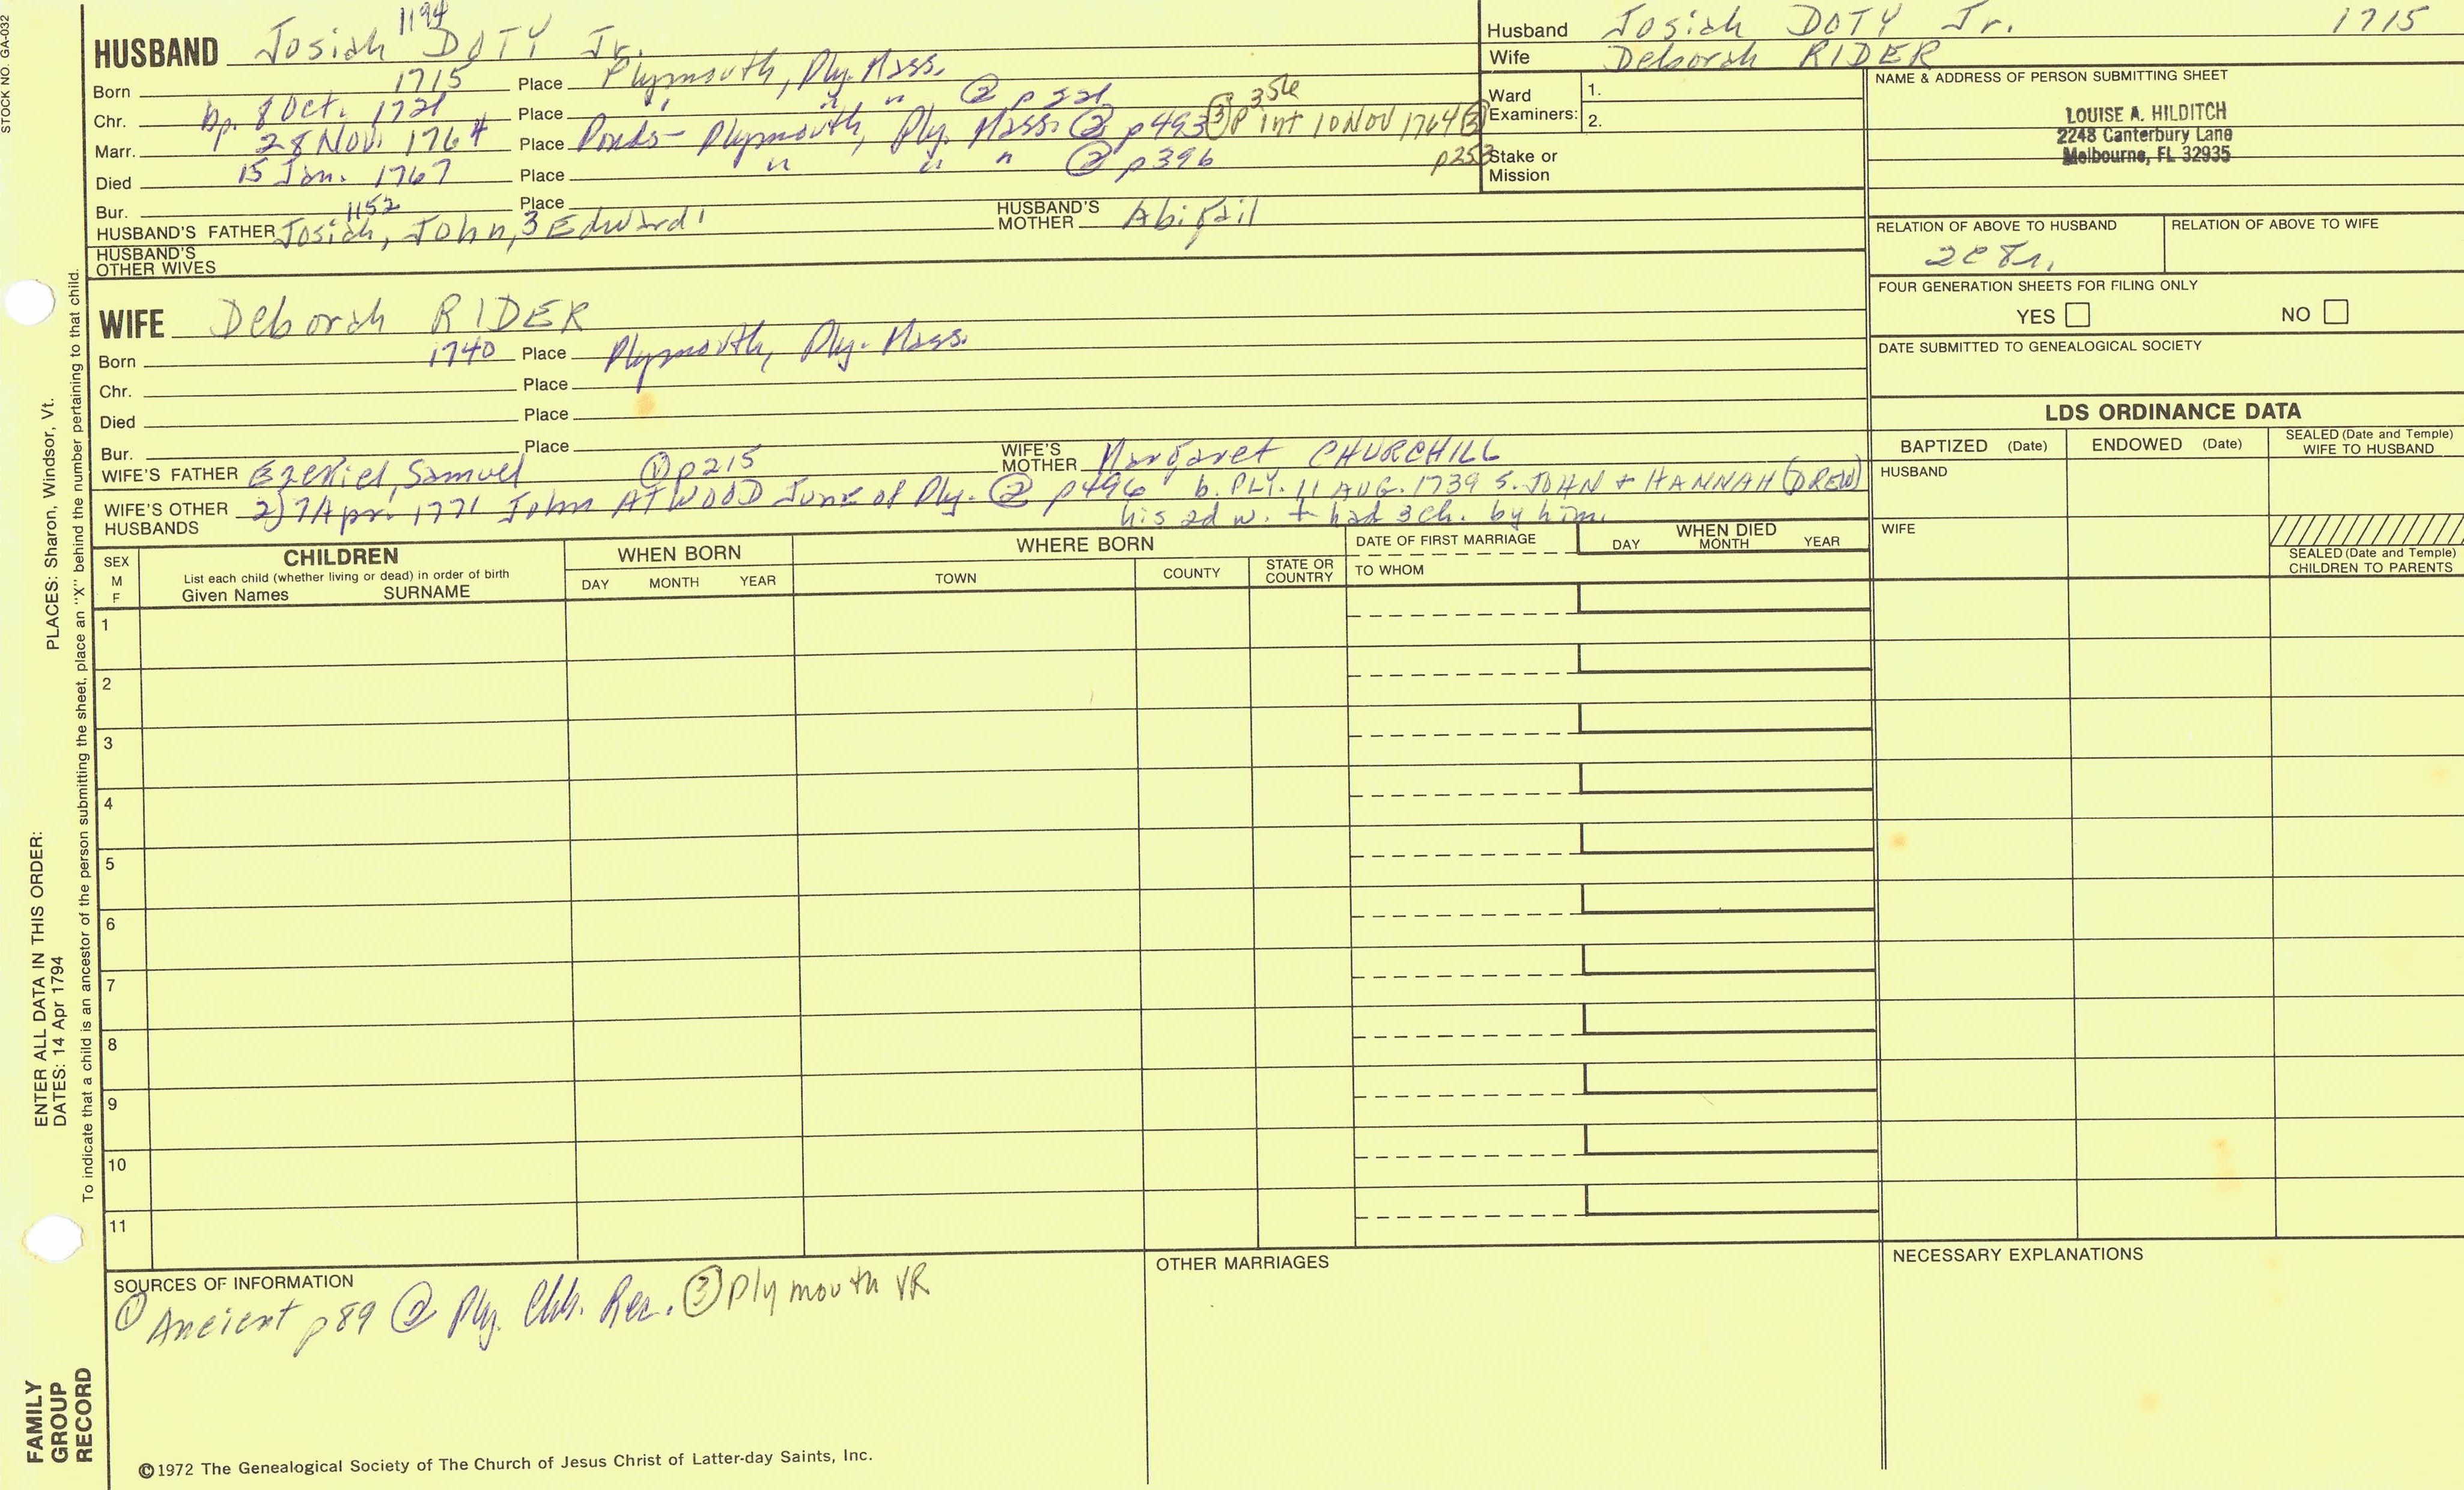 STOCK NO. GA-032
1194
HUSBAND Josiah DOTY Jr.
Born 1715 Place Plymouth, Ply. Mass.
Chr. bp. 8 Oct. 1721 Place " " " ② p 221
Marr. 28 Nov. 1764 Place Ponds - Plymouth, Ply. Mass. ② p493 ③ p 356 int 10 Nov 1764 ③ p253
Died 15 Jan. 1767 Place " " " ② p396
Bur. Place
1152
HUSBAND'S FATHER Josiah, John, 3 Edward 1 HUSBAND'S MOTHER Abigail
HUSBAND'S OTHER WIVES
WIFE Deborah RIDER
Born 1740 Place Plymouth, Ply. Mass.
Chr. Place
Died Place
Bur. Place
WIFE'S FATHER Ezekiel, Samuel ① p215 WIFE'S MOTHER Margaret CHURCHILL
WIFE'S OTHER HUSBANDS 2) 7 Apr. 1771 John ATWOOD Junr of Ply. ② p496 b. PLY. 11 AUG. 1739 S. JOHN + HANNAH (DREW)
his 2d w. + had 3 ch. by him.
Husband Josiah DOTY Jr. 1715
Wife Deborah RIDER
Ward Examiners: 1.
2.
Stake or Mission
NAME & ADDRESS OF PERSON SUBMITTING SHEET
LOUISE A. HILDITCH
2248 Canterbury Lane
Melbourne, FL 32935
RELATION OF ABOVE TO HUSBAND RELATION OF ABOVE TO WIFE
2c 8r.
FOUR GENERATION SHEETS FOR FILING ONLY
YES NO
DATE SUBMITTED TO GENEALOGICAL SOCIETY
LDS ORDINANCE DATA
BAPTIZED (Date) ENDOWED (Date) SEALED (Date and Temple) WIFE TO HUSBAND
HUSBAND
WIFE
SEALED (Date and Temple) CHILDREN TO PARENTS
SEX M F
CHILDREN
List each child (whether living or dead) in order of birth
Given Names SURNAME
WHEN BORN
DAY MONTH YEAR
WHERE BORN
TOWN COUNTY STATE OR COUNTRY
DATE OF FIRST MARRIAGE
TO WHOM
WHEN DIED
DAY MONTH YEAR
1
2
3
4
5
6
7
8
9
10
11
SOURCES OF INFORMATION
① Ancient p89 ② Ply. Chh. Rec. ③ Plymouth VR
OTHER MARRIAGES
NECESSARY EXPLANATIONS
©1972 The Genealogical Society of The Church of Jesus Christ of Latter-day Saints, Inc.
FAMILY GROUP RECORD
ENTER ALL DATA IN THIS ORDER:
DATES: 14 Apr 1794
PLACES: Sharon, Windsor, Vt.
To indicate that a child is an ancestor of the person submitting the sheet, place an "X" behind the number pertaining to that child.